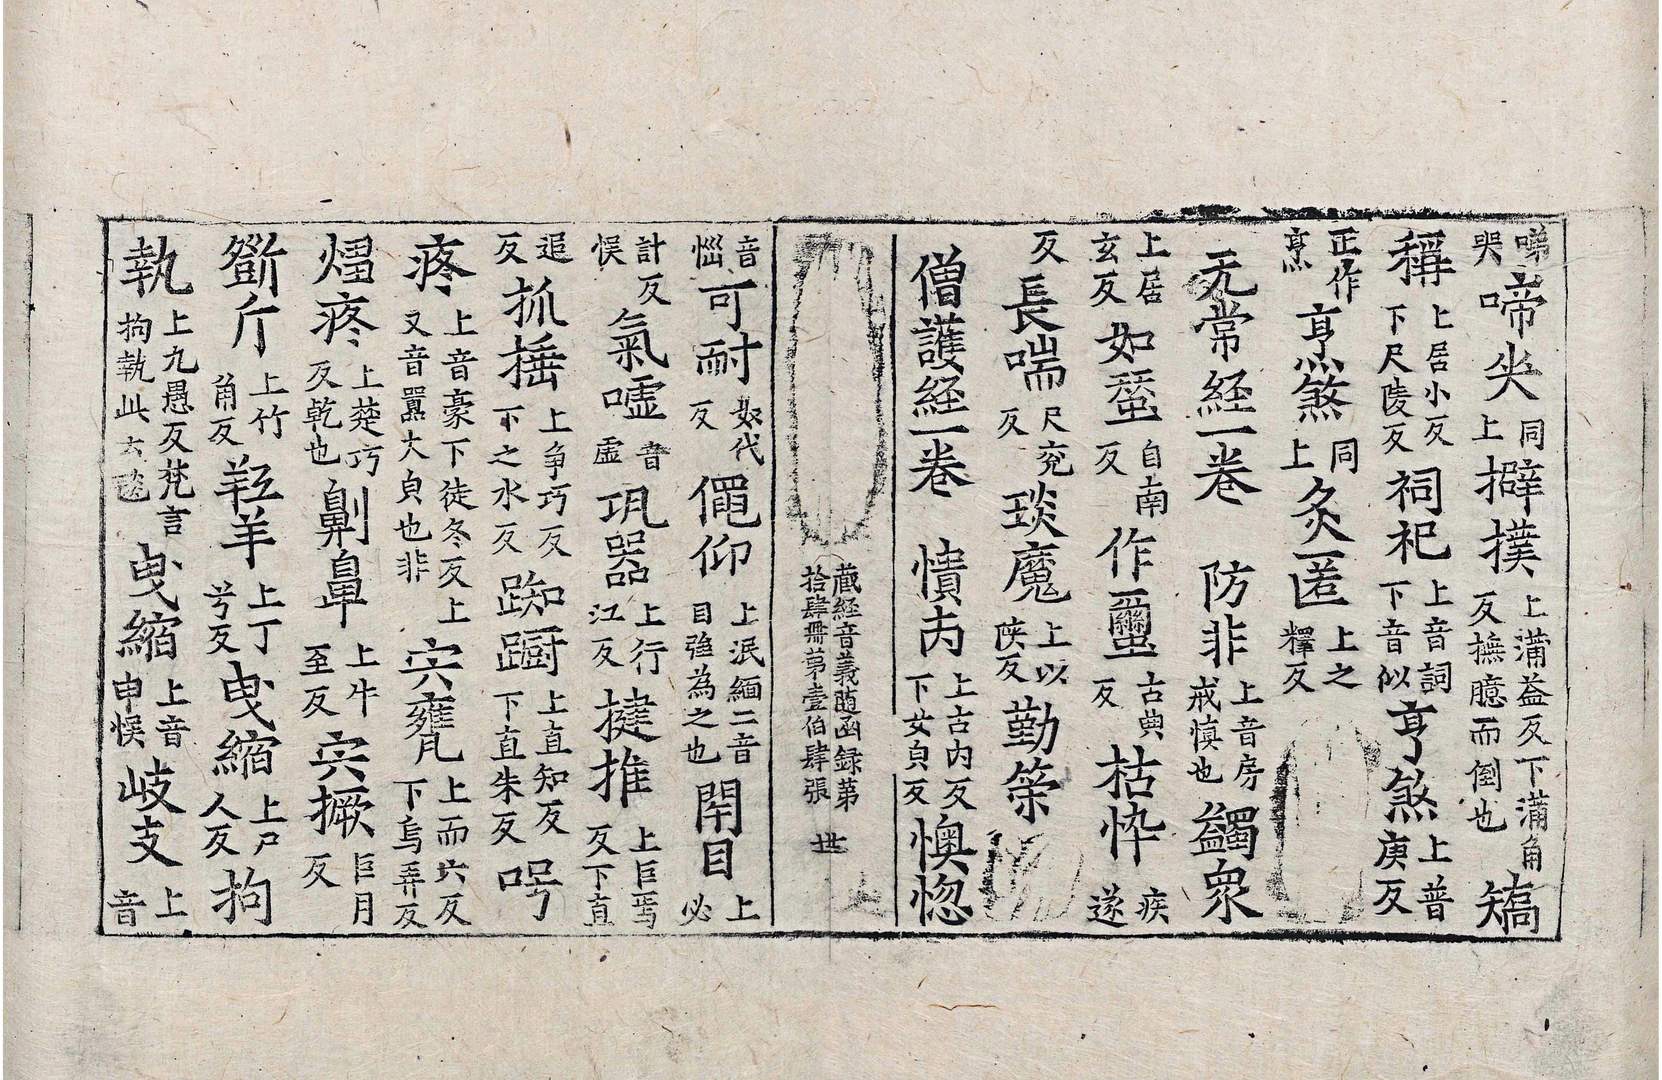 啼哭啼㕦同上擗撲上蒲益反下蒲角反撫臆而倒也矯
稱上居小反下尺陵反祠祀上音詞下音似亨煞上普庚反
正作烹烹煞同上灸匿上之釋反
无常經一卷 防非上音房戒慎也蠲衆
上居玄反如蝅自南反作壐古典反枯悴疾遂
反長喘尺兖反琰魔上以陝反勤策
僧護經一卷 憒丙上古内反下女皃反懊惚
藏經音義随函録第拾肆冊第壹伯肆張 世
音惱可耐奴代反僶仰上泯緬二音自強為之也閇目上必
計反悮氣嘘音虚𤬪器上行江反揵推上巨焉反下直
追反抓搥上争巧反下之水反踟蹰上直知反下直朱反呺
疼上音豪下徒冬反上又音嚚大皃也非宍甕上而六反下烏弄反
煼疼上楚巧反乾也劓鼻上牛至反宍撅巨月反
斵斤上竹角反羥羊上丁兮反曳縮上尸人反拘
執上九愚反梵言拘執此云毯曳縮上音申悮岐支上音